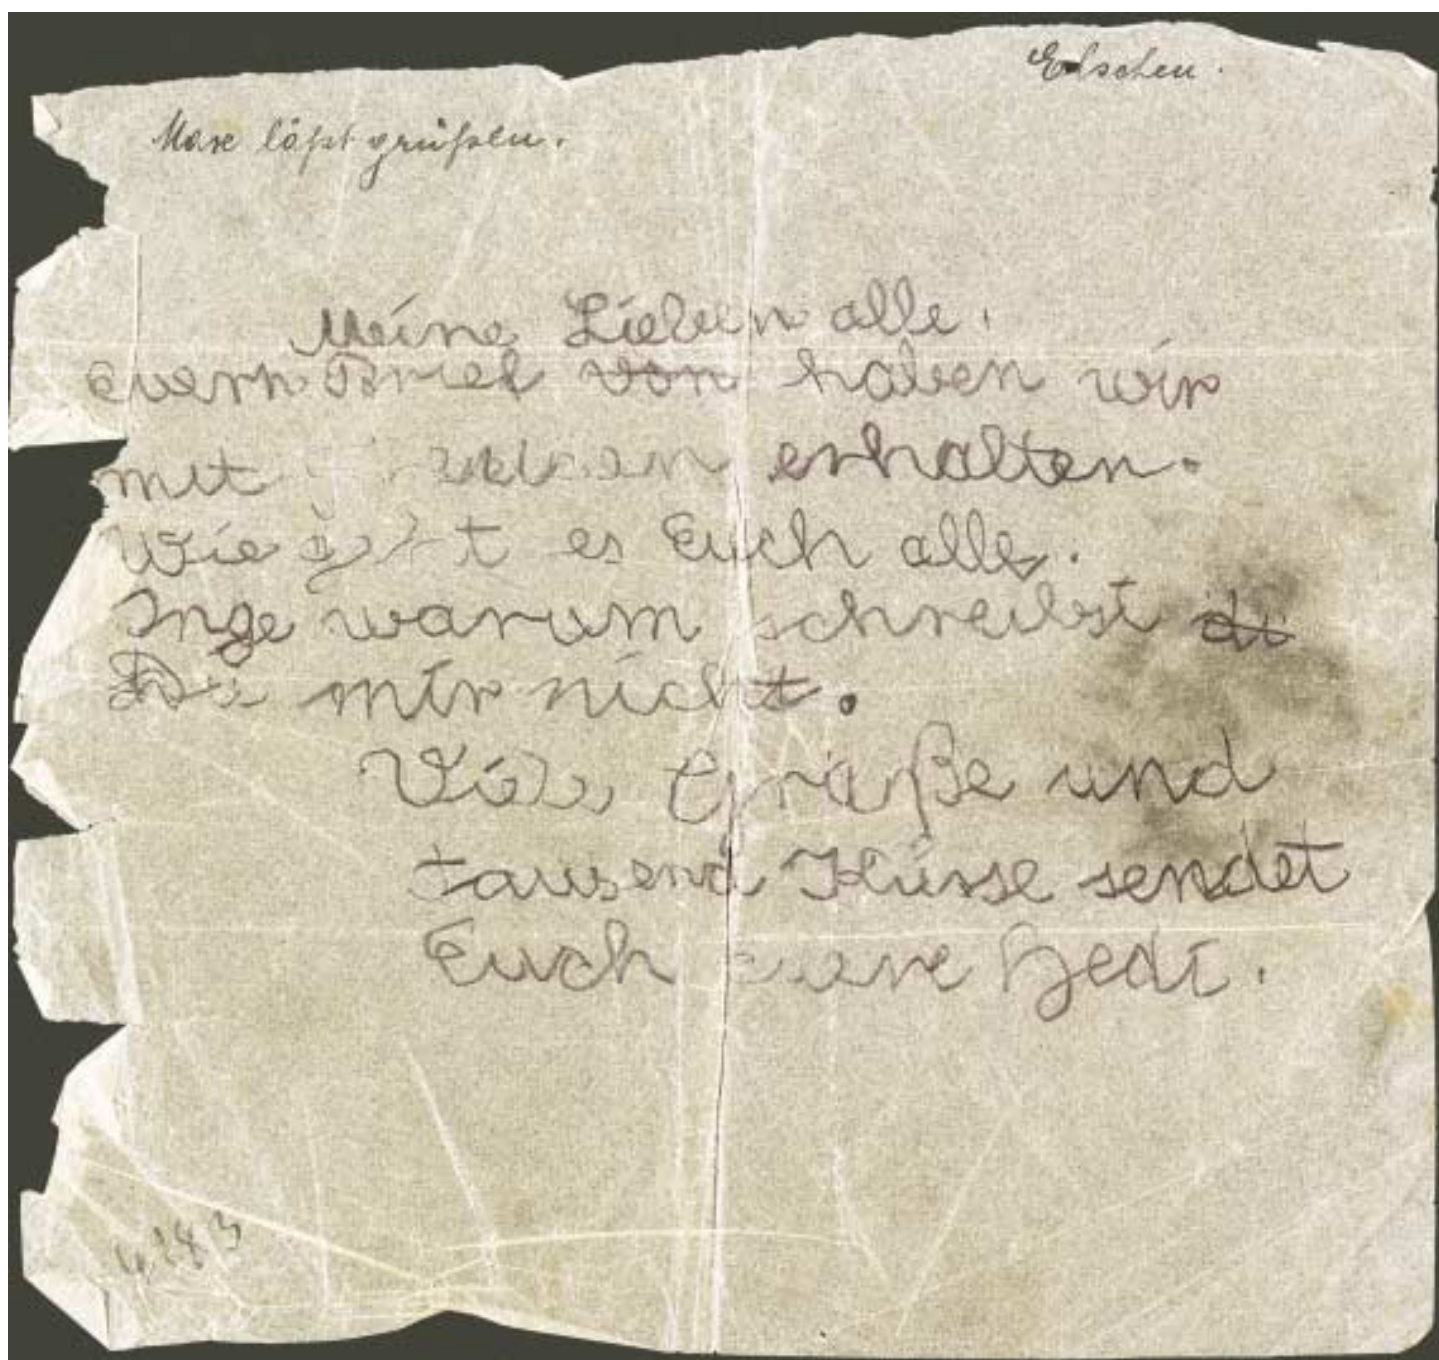 Elschen.
Max läßt grüßen.
Meine Lieben alle.
Euern Brief von haben wir
mit Freuden erhalten.
Wie geht es Euch alle.
Inge warum schreibst du
Du mir nicht.
Viele Grüße und
tausend Küsse sendet
Euch eure Hedi.